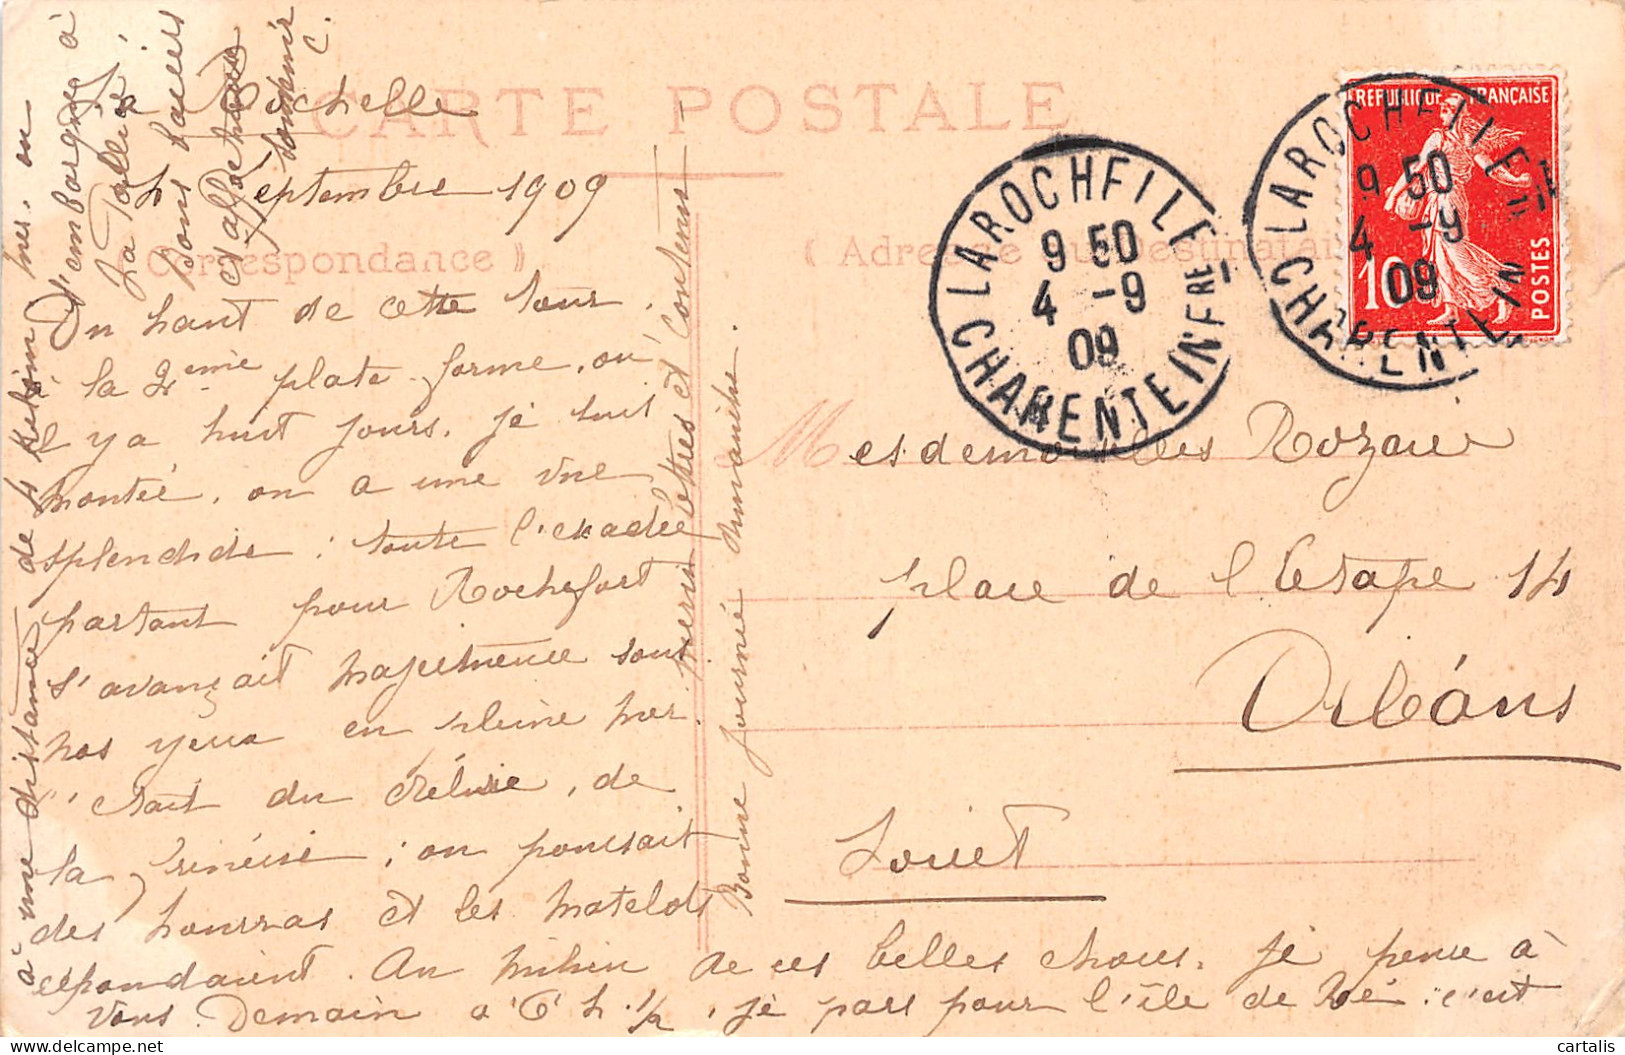 CARTE POSTALE
La Rochelle
4 Septembre 1909
( Correspondance )
( Adresse du Destinataire
Du haut de cette tour,
à la 2ème plate-forme, où
il y a huit jours, je suis
montée, on a une vue
splendide ; toute l'escadre
partant pour Rochefort
s'avançait majestueuse sous
nos yeux en pleine mer.
C'était du délire, de
la frénésie ; on poussait
des hourras et les matelots
répondaient. Au milieu de ces belles choses, je pense à
vous. Demain à 6 h. 1/2, je pars pour l'île de Ré : c'est
à une distance de 4 km mer. on
s'embarque à
La Pallice.
Bons baisers
et affectueux
souvenir
C.
Merci lettres et
Bonne journée dimanche.
REPUBLIQUE FRANÇAISE
10
POSTES
LA ROCHELLE
9 50
4 -9
09
CHARENTE INFRE
LA ROCHELLE
9 50
4 -9
09
CHARENTE IN
Mesdemoiselles Rozaire
place de l'Etape 14
Orléans
Loiret
cartalis